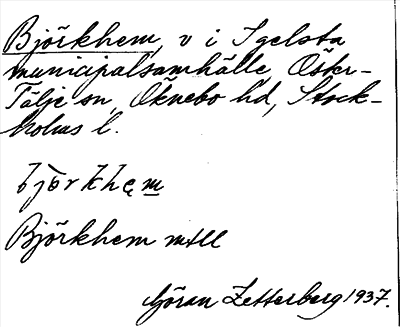 Björkhem, v i Igelsta
municipalsamhälle, Öster-
Tälje sn, Öknebo hd, Stock-
holms l.
bjorkhem
Björkhem mtll
Göran Zetterberg 1937.